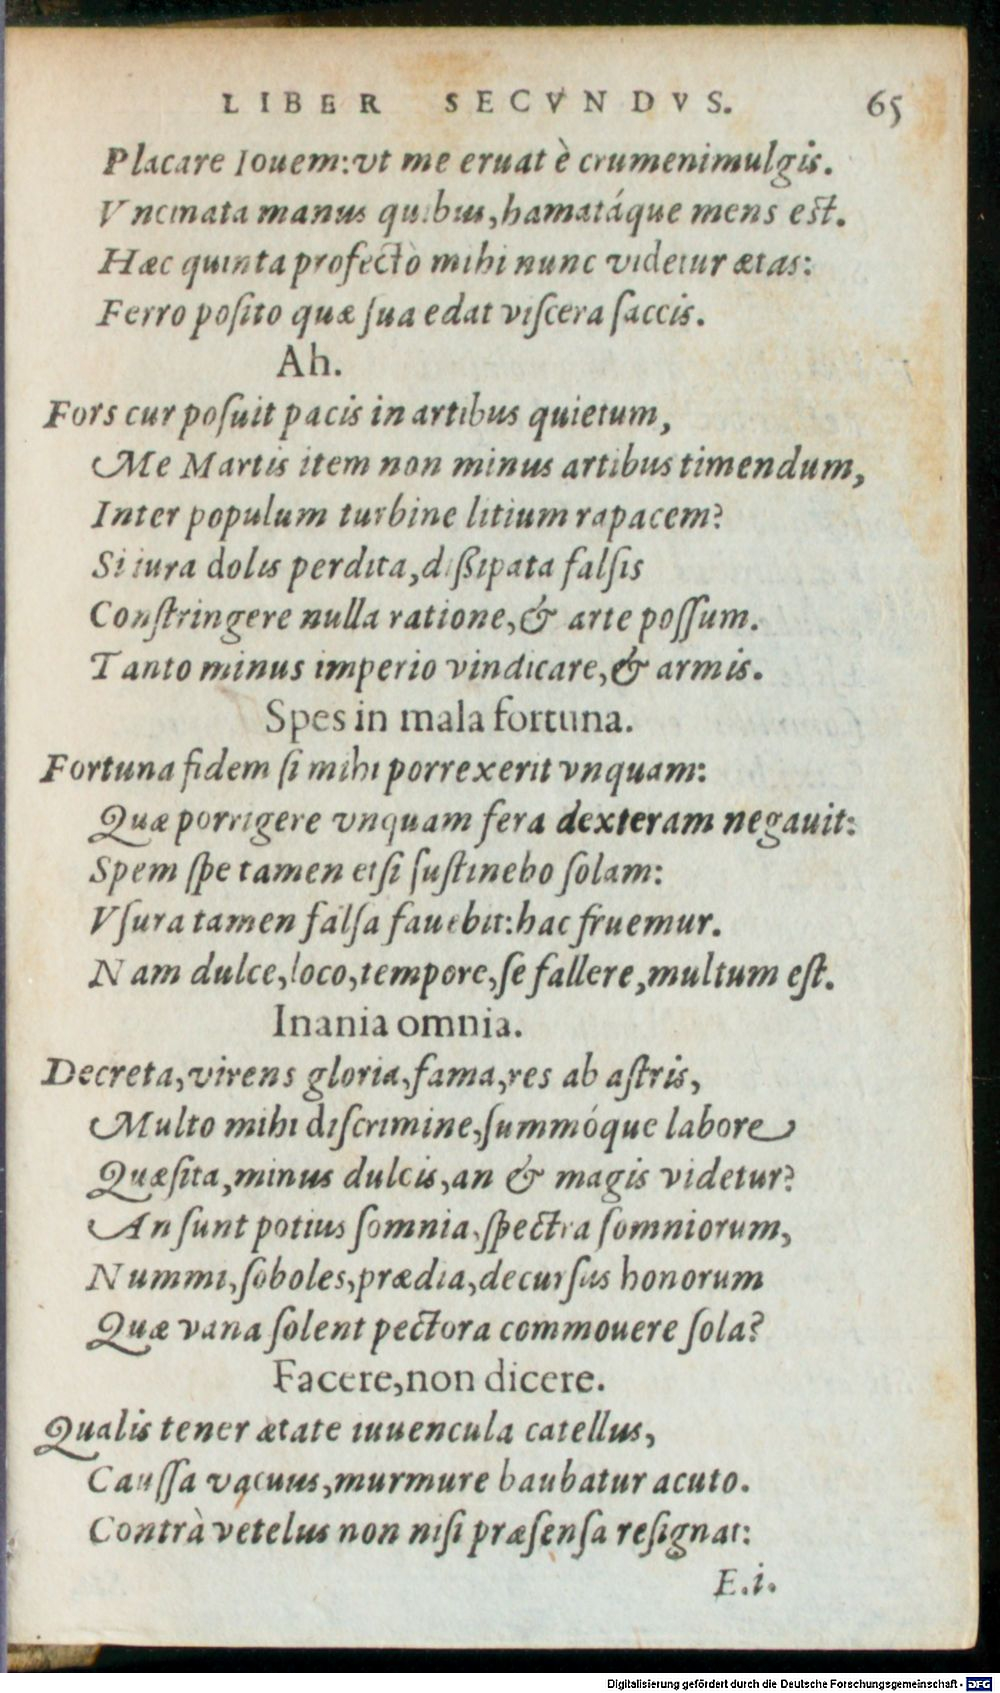 LIBER SECVNDVS. 65
Placare Iouem: vt me eruat è crumenimulgis.
Vncinata manus quibus, hamatáque mens est.
Hæc quinta profectò mihi nunc videtur ætas:
Ferro posito quæ sua edat viscera saccis.
Ah.
Fors cur posuit pacis in artibus quietum,
Me Martis item non minus artibus timendum,
Inter populum turbine litium rapacem?
Si iura dolis perdita, dißipata falsis
Constringere nulla ratione, & arte possum.
Tanto minus imperio vindicare, & armis.
Spes in mala fortuna.
Fortuna fidem si mihi porrexerit vnquam:
Quæ porrigere vnquam fera dexteram negauit:
Spem spe tamen etsi sustinebo solam:
Vsura tamen falsa fauebit: hac fruemur.
Nam dulce, loco, tempore, se fallere, multum est.
Inania omnia.
Decreta, virens gloria, fama, res ab astris,
Multo mihi discrimine, summóque labore
Quæsita, minus dulcis, an & magis videtur?
An sunt potius somnia, spectra somniorum,
Nummi, soboles, prædia, decursus honorum
Quæ vana solent pectora commouere sola?
Facere, non dicere.
Qualis tener ætate iuuencula catellus,
Caussa vacuus, murmure baubatur acuto.
Contrà vetelus non nisi præsensa resignat:
E.i.
Digitalisierung gefördert durch die Deutsche Forschungsgemeinschaft - DFG